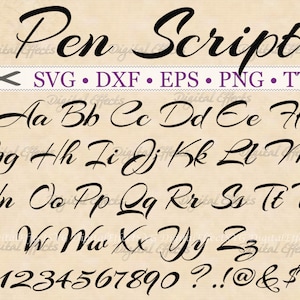 Pen Script
SVG • DXF • EPS • PNG • T
Aa Bb Cc Dd Ee F
g Hh Ii Jj Kk Ll
n Oo Pp Qq Rr Ss Tt
Vv Ww Xx Yy Zz
1234567890 ?.!@&$
Digital Effects